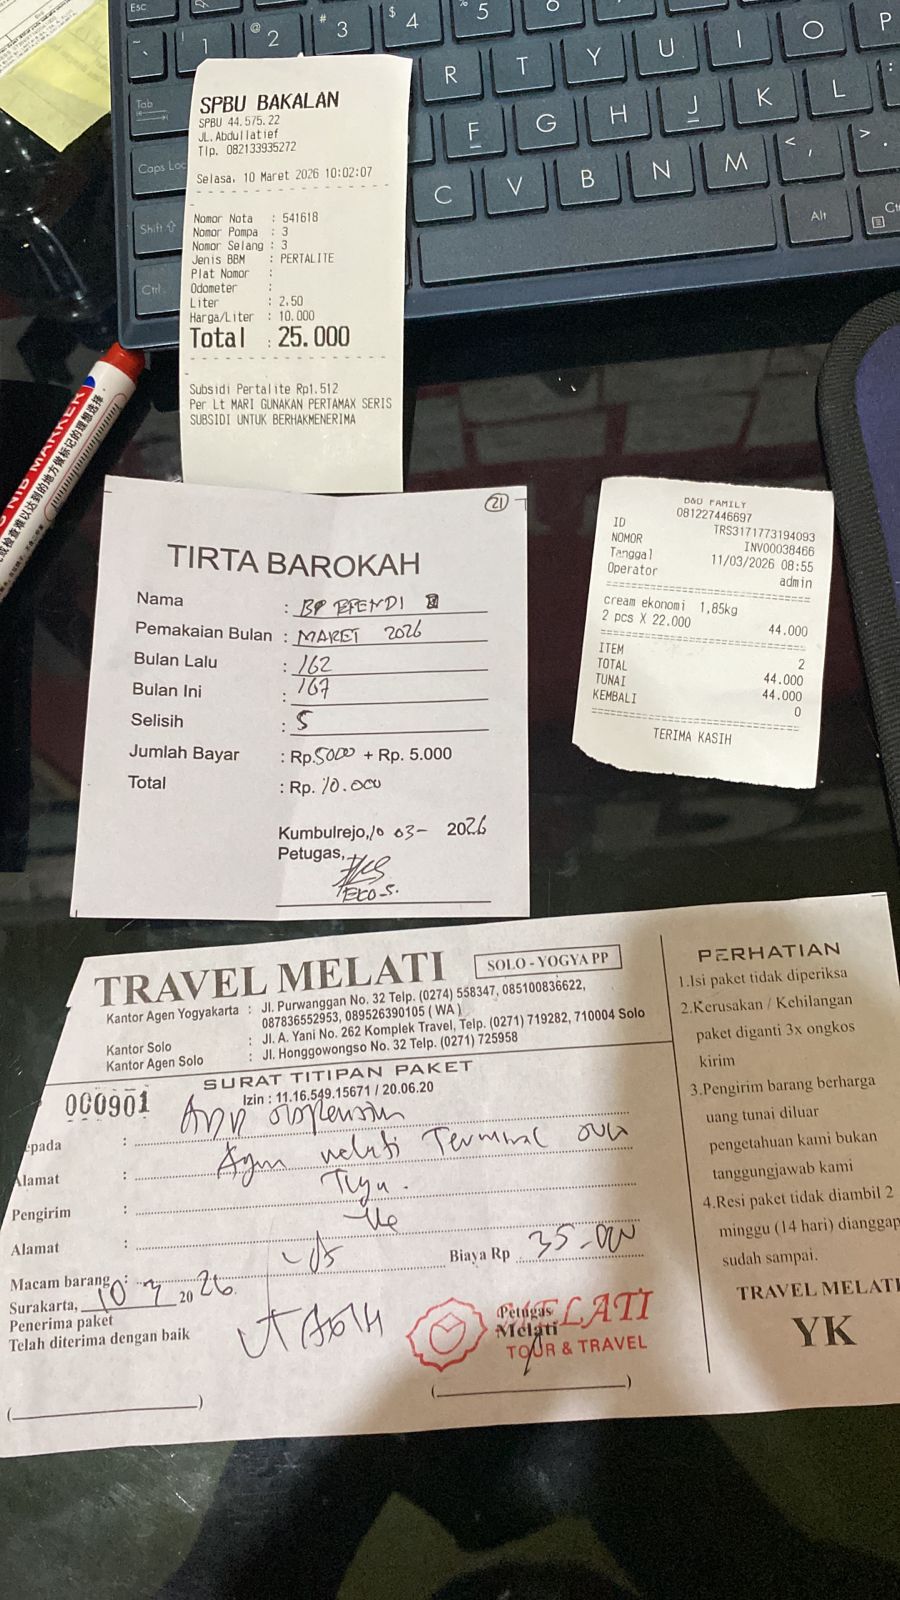 Esc
~ `
! 1
@ 2
# 3
$ 4
% 5
6
Tab
R T Y U I O P
Caps Loc
F G H J K L
Shift
C V B N M < , > .
Ctrl
Alt
Ctr
NIB MARKER
SPBU BAKALAN
SPBU 44.575.22
JL.Abdullatief
Tlp. 082133935272
Selasa, 10 Maret 2026 10:02:07
Nomor Nota : 541618
Nomor Pompa : 3
Nomor Selang : 3
Jenis BBM : PERTALITE
Plat Nomor :
Odometer :
Liter : 2.50
Harga/Liter : 10.000
Total : 25.000
Subsidi Pertalite Rp1.512
Per Lt MARI GUNAKAN PERTAMAX SERIS
SUBSIDI UNTUK BERHAKMENERIMA
21
TIRTA BAROKAH
Nama : BP EFENDI
Pemakaian Bulan : MARET 2026
Bulan Lalu : 162
Bulan Ini : 167
Selisih : 5
Jumlah Bayar : Rp.5000 + Rp. 5.000
Total : Rp. 10.000
Kumbulrejo,10 03- 2026
Petugas,
EKO-S.
D&D FAMILY
081227446697
ID TRS3171773194093
NOMOR INV00038466
Tanggal 11/03/2026 08:55
Operator admin
cream ekonomi 1,85kg
2 pcs X 22.000 44.000
ITEM 2
TOTAL 44.000
TUNAI 44.000
KEMBALI 0
TERIMA KASIH
TRAVEL MELATI SOLO - YOGYA PP
Kantor Agen Yogyakarta : Jl. Purwanggan No. 32 Telp. (0274) 558347, 085100836622,
087836552953, 089526390105 ( WA )
Kantor Solo : Jl. A. Yani No. 262 Komplek Travel, Telp. (0271) 719282, 710004 Solo
Kantor Agen Solo : Jl. Honggowongso No. 32 Telp. (0271) 725958
SURAT TITIPAN PAKET
Izin : 11.16.549.15671 / 20.06.20
000901
epada :
Alamat : Agen melati Terminal
Pengirim :
Alamat :
Macam barang :
Biaya Rp 35.000
Surakarta, 10 3 2026
Penerima paket
Telah diterima dengan baik
Petugas
Melati
MELATI
TOUR & TRAVEL
( )
( )
PERHATIAN
1.Isi paket tidak diperiksa
2.Kerusakan / Kehilangan
paket diganti 3x ongkos
kirim
3.Pengirim barang berharga
uang tunai diluar
pengetahuan kami bukan
tanggungjawab kami
4.Resi paket tidak diambil 2
minggu (14 hari) dianggap
sudah sampai.
TRAVEL MELATI
YK